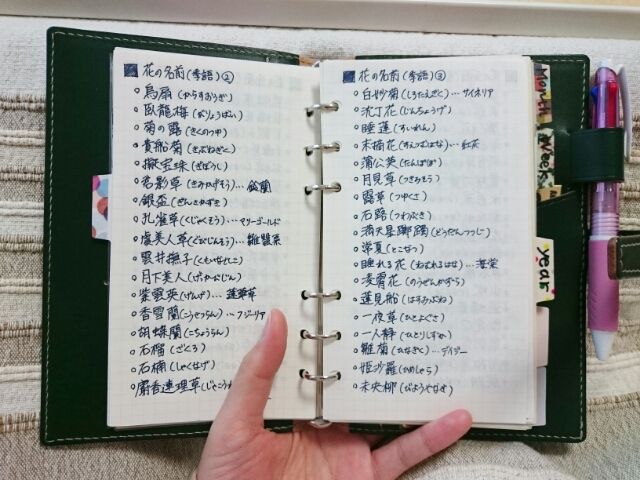 花の名前(季語)②
○烏扇(からすおうぎ)
○臥龍梅(がりょうばい)
○菊の露(きくのつゆ)
○貴船菊(きぶねぎく)
○擬宝珠(ぎぼうし)
○君影草(きみかげそう)…鈴蘭
○銀盃(ぎんさかずき)
○孔雀草(くじゃくそう)…マリーゴールド
○虞美人草(ぐびじんそう)…雛罌粟
○雲井撫子(くもいなでしこ)
○月下美人(げっかびじん)
○紫雲英(げんげ)…蓮華草
○香雪蘭(こうせつらん)…フリージア
○胡蝶蘭(こちょうらん)
○石榴(ざくろ)
○石楠(しゃくなげ)
○麝香連理草(じゃこう
花の名前(季語)③
○白妙菊(しろたえぎく)…サイネリア
○沈丁花(じんちょうげ)
○睡蓮(すいれん)
○末摘花(すえつむはな)…紅花
○蒲公英(たんぽぽ)
○月見草(つきみそう)
○露草(つゆくさ)
○石蕗(つわぶき)
○満天星躑躅(どうだんつつじ)
○常夏(とこなつ)
○睡れる花(ねむれるはな)…海棠
○凌霄花(のうぜんかずら)
○蓮見船(はすみぶね)
○一夜草(ひとよぐさ)
○一人静(ひとりしずか)
○雛菊(ひなぎく)…デイジー
○姫沙羅(ひめしゃら)
○未央柳(びようやなぎ)
Month
Week
year